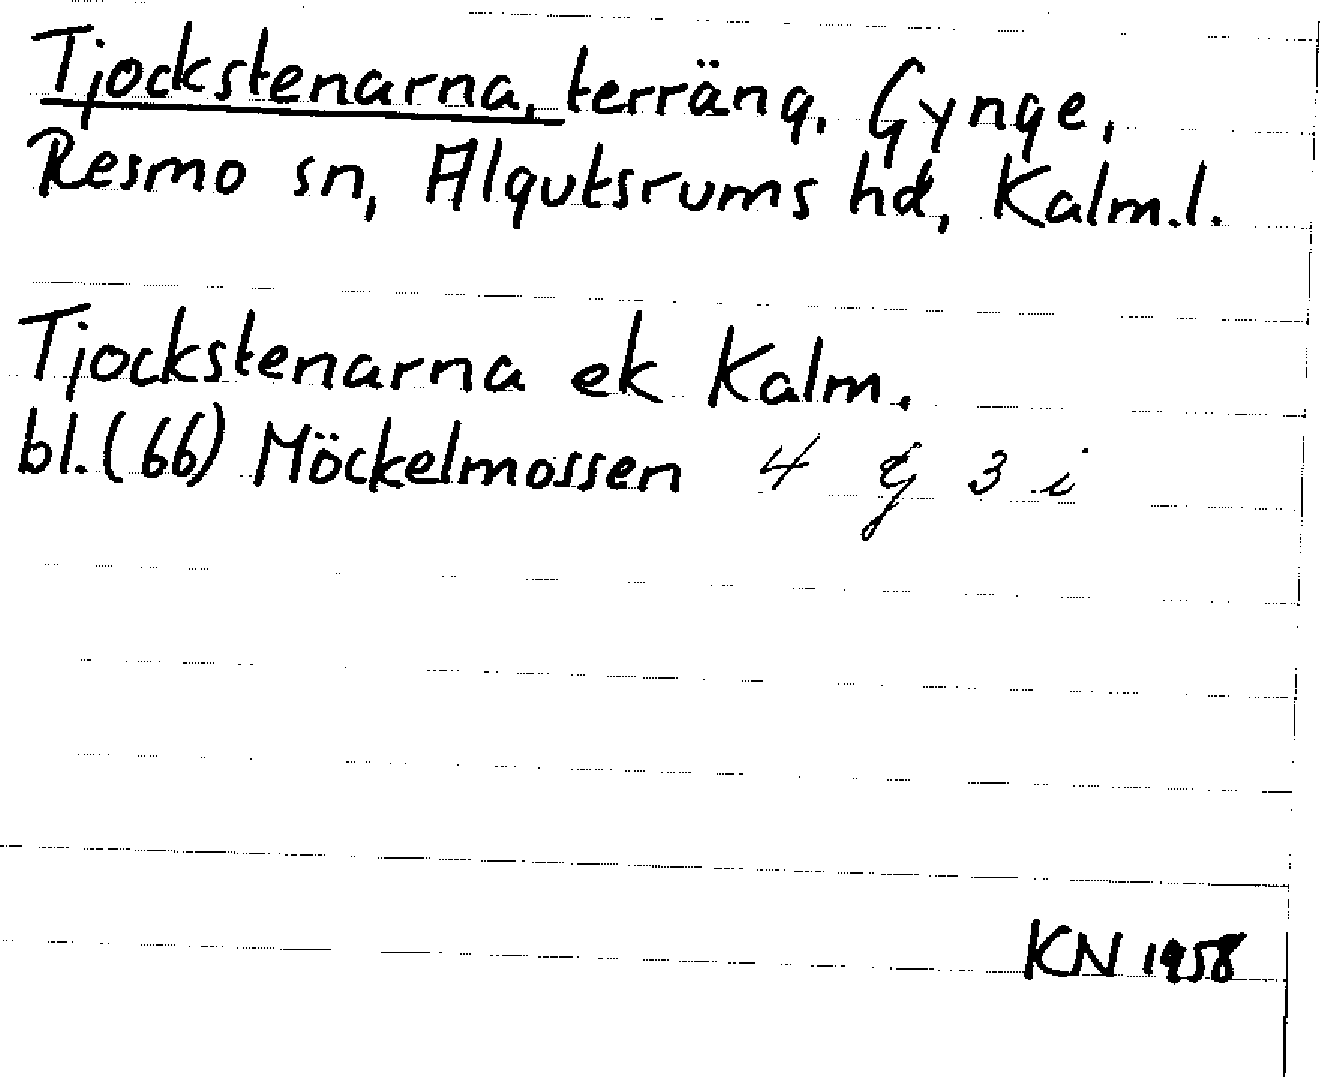 Tjockstenarna, terräng, Gynge,
Resmo sn, Algutsrums hd, Kalm.l.
Tjockstenarna ek Kalm.
bl. (66) Möckelmossen 4 G 3 i
KN 1958